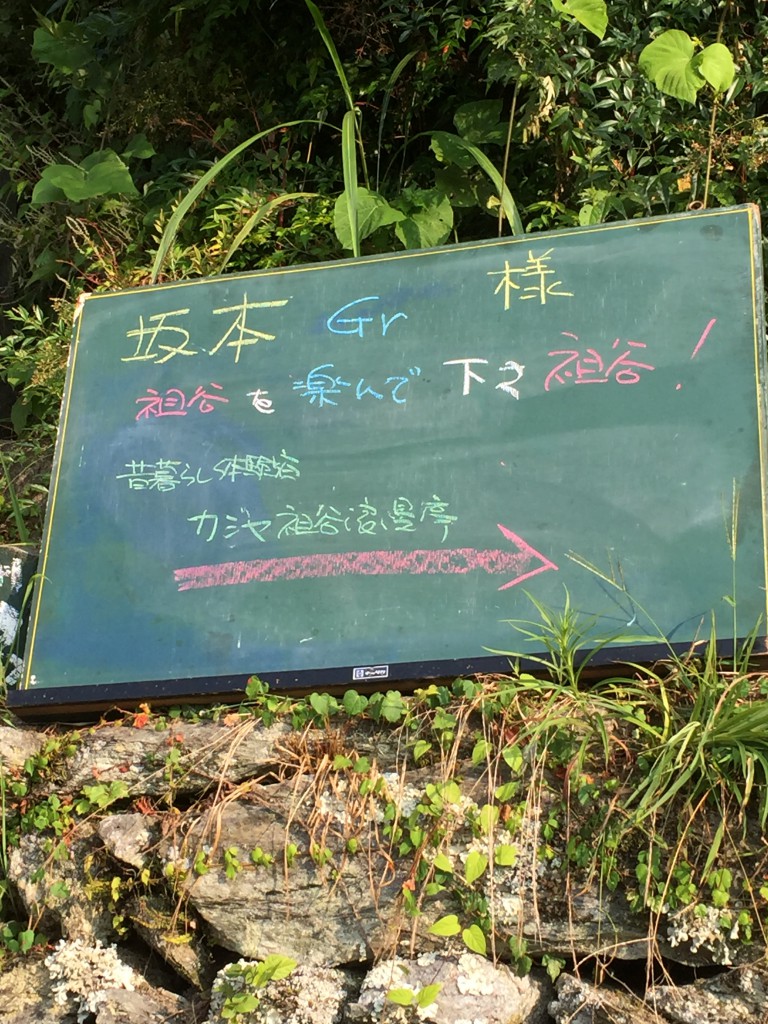 坂本 Gr 様
祖谷を楽んで下さ祖谷!
昔暮らし体験宿
カジヤ祖谷浪漫亭